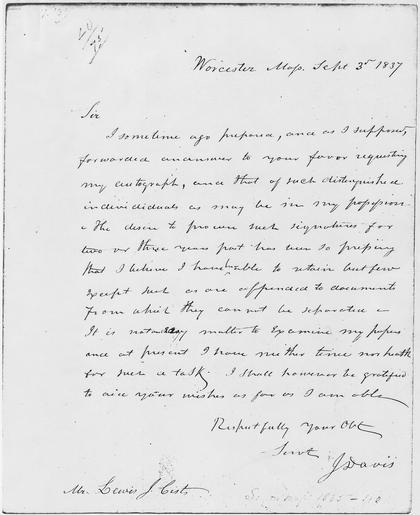 Worcester Mass. Sept 3d 1837
Sir
I sometime ago prepared, and as I supposed,
forwarded an answer to your favor requesting
my autograph, and that of such distinguished
individuals as may be in my possession
The desire to procure such signatures for
two or three years past has been so pressing
that I believe I have been able to retain but few
except such as are appended to documents
from which they cannot be separated
It is not an easy matter to examine my papers
and at present I have neither time nor health
for such a task. I shall however be gratified
to aid your wishes as far as I am able
Respectfully Your Obt
Servt
J Davis
Mr. Lewis J. Cist